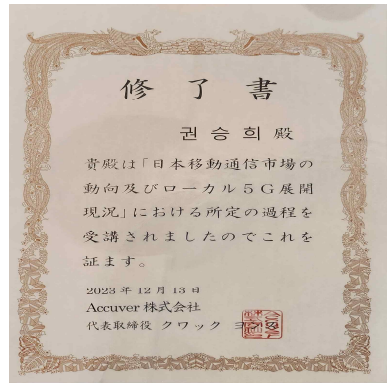 修了書
권승희 殿
貴殿は「日本移動通信市場の
動向及びローカル5G展開
現況」における所定の過程を
受講されましたのでこれを
証ます。
2023年12月13日
Accuver 株式会社
代表取締役 クワック